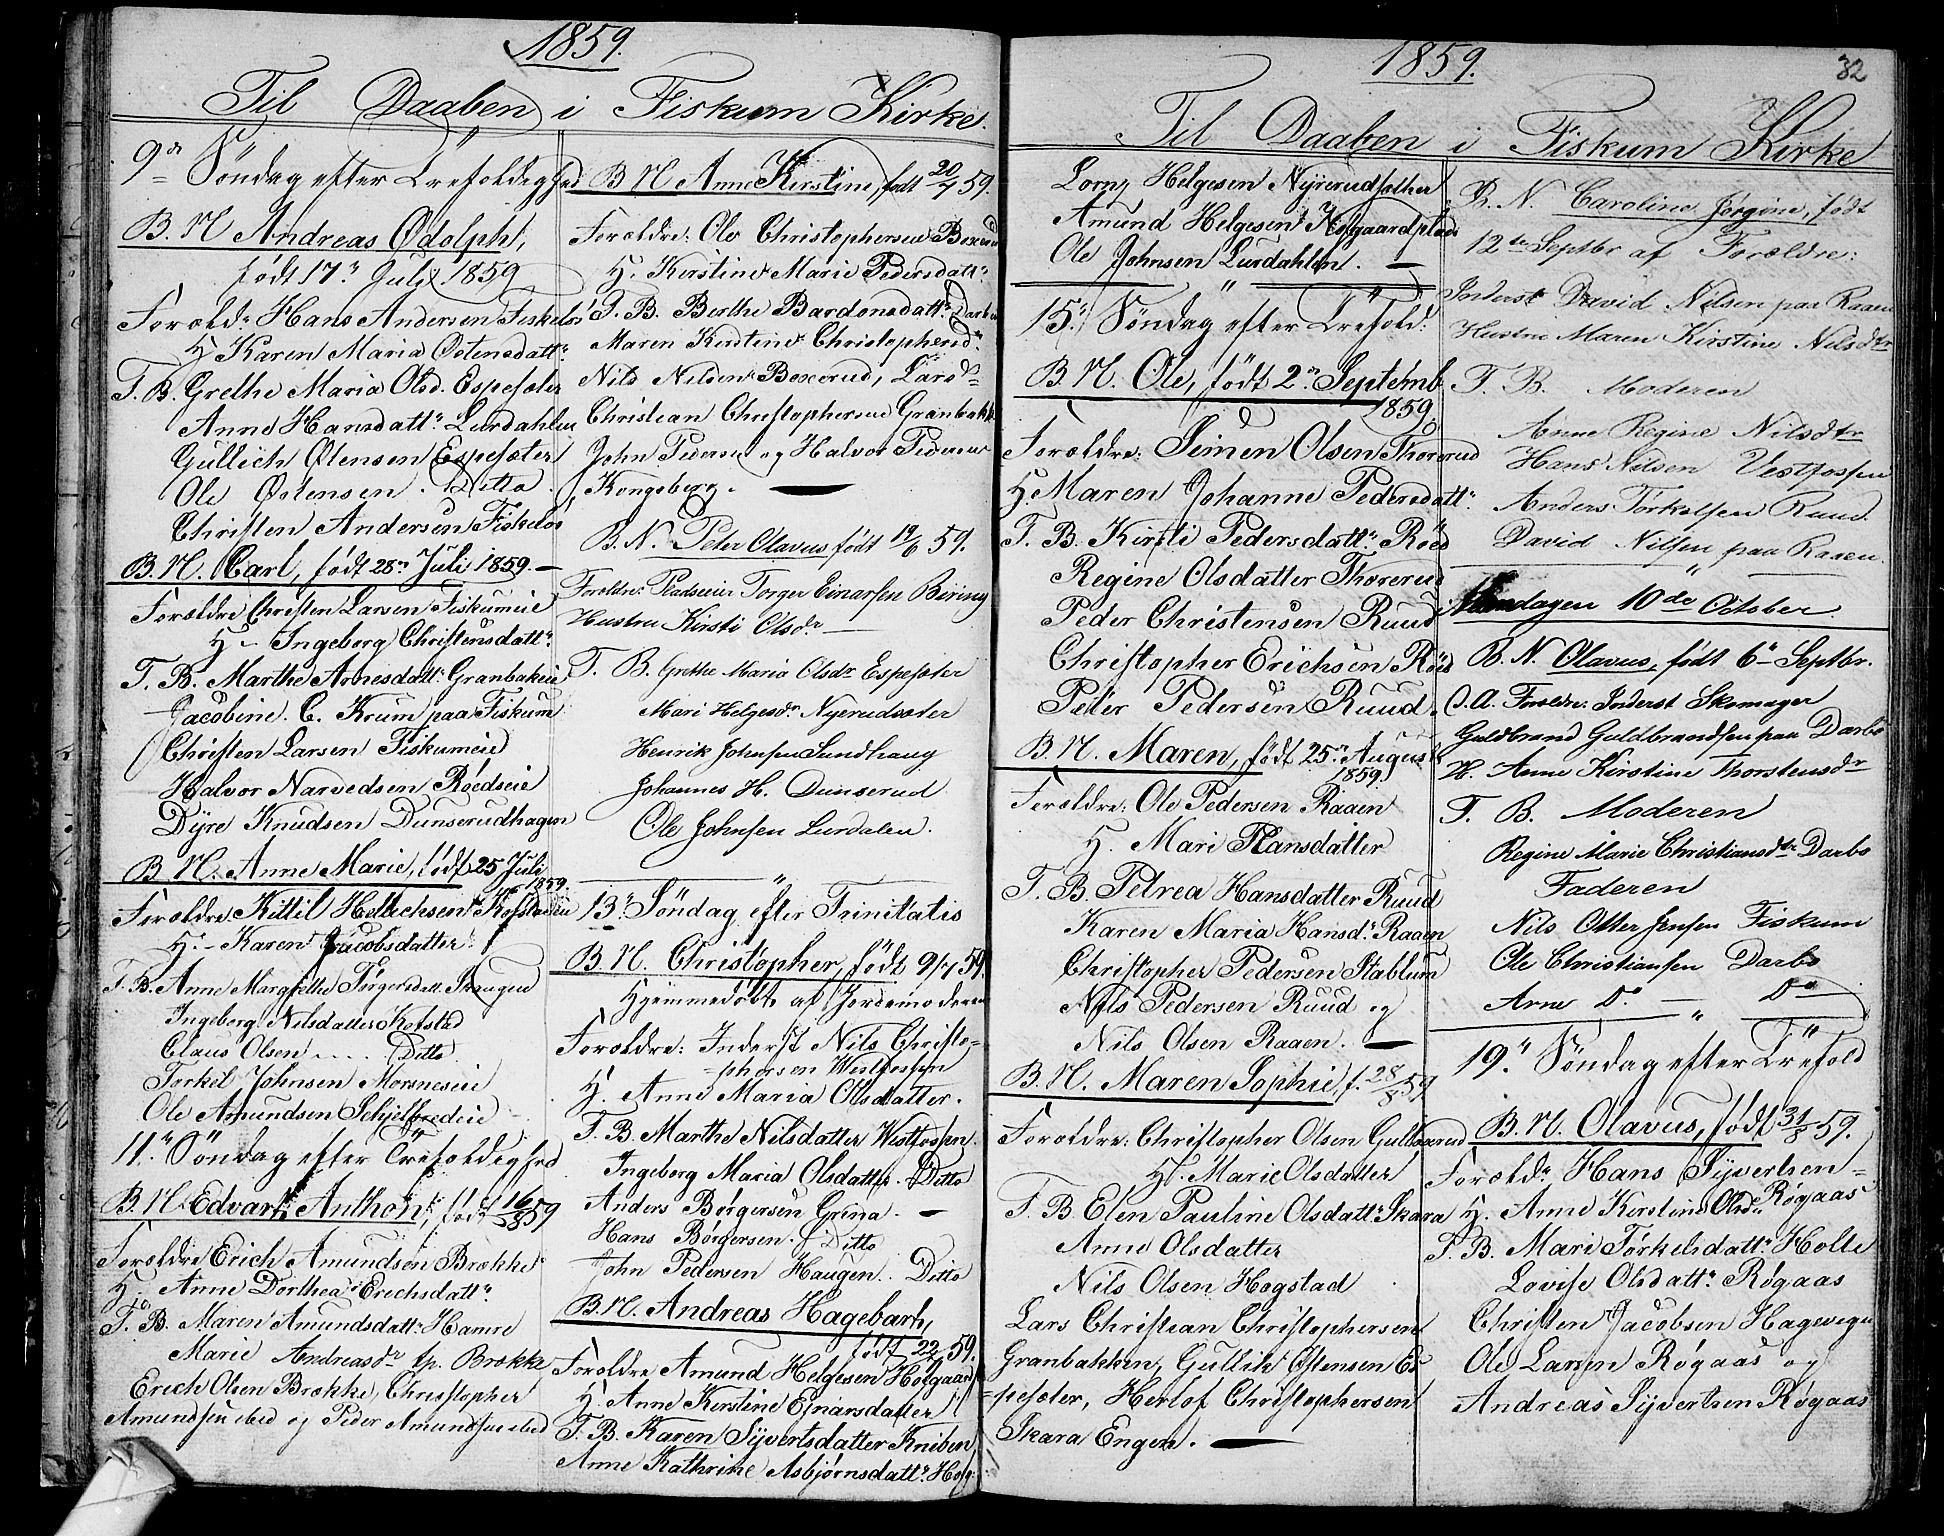 1859.
Til Daaben i Fiskum Kirke.
9de Søndag efter Trefoldighed
B. N. Andreas Odolph,
født 17n Juli 1859
Foræld: Hans Andersen Fiskelös
H Karen Maria Østensdattr
F. B. Grethe Maria Olsd. Espesæter
Anne Hansdattr Lurdahlen
Gullich Østensen Espesæter
Ole Østensen. Ditto.
Christen Andersen Fiskelös
B. N. Carl, født 28n Juli 1859. —
Forældre Christen Larsen Fiskumeie
H - Ingeborg Christensdattr
F. B. Marthe Arnesdattr Granbakeie
Jacobine. C. Krum paa Fiskum
Christen Larsen Fiskumeie
Halvor Narvedsen Röedseie
Dÿre Knudsen Dunserudhagen
B. N. Anne Marie, født 25 Juli
1859.
Forældre Kittil Hellichsen Kofstadeie
H. - Karen Jacobsdatter
F. B. Anne Margrethe Torgersdatt.
Ingeborg Nilsdatter Kofstad
Claus Olsen - - - Ditto.
Torkil Johnsen Morsneseie
Ole Amundsen Schjelbredeie
11n Søndag efter Trefoldighed
B. N. Edvart Anthon, født 16/8 59
Forældre Erich Amundsen Brække
H. Anne Dorthea Erichsdattr
F. B. Maren Amundsdattr Hamre
Marie Andreasdr Brække
Erich Olsen Brække, Christopher
Amundsen ibid og Peder Amundsen ibid
B N Anne Kirstine, født 20/7 59.
Forældre: Ole Christophersen Boxerud
H. Kirstine Marie Pedersdattr
F. B. Berthe Bardonsdattr Darbu
Maren Kirstine Christophersdr
Nils Nilsen Boxerud, Lars
Christian Christophersen Granbakk.
John Pedersen og Halvor Pedersen
Kongsberg. —
B. N. Peter Olavus født 19/6 59.
Forældre: Pladseier Torger Einarsen Børing
Hustru Kirsti Olsdr —
F. B. Grethe Maria Olsdr Espesæter
Mari Helgesdr Nyerudsæter
Henrik Johnsen Sundhaug
Johannes H. Dunserud
Ole Johnsen Lurdalen.
13n Søndag efter Trinitatis
B. N. Christopher, født 9/7 59.
Hjemmedøbt af Jordemoderen
Forældre: Inderst Nils Christo=
=phersen Westfossen
H. Anne Maria Olsdatter.
F. B. Marthe Nilsdatter Westfossen.
Ingeborg Maria Olsdatter. Ditto
Anders Børgersen Grina. —
Hans Børgersen. Ditto
John Pedersen Haugen. Ditto
B. N. Andreas Hagebarth,
født 22/ 59.
Forældre Amund Helgesen Holgaard
H Anne Kirstine Ejnarsdatter
F. B. Karen Syvertsdatter Kniben,
Anne Kathrine Asbjørnsdattr Hog=
1859.
32
Til Daaben i Fiskum Kirke
Helgesen Nyrerudsæther
Amund Helgesen Holgaardplads
Ole Johnsen Lurdahlen. —
15n Søndag efter Trefold:
B. N. Ole, født 2n Septemb
1859
Forældre: Seimen Olsen Thorerud
H Maren Johanne Pedersdattr
F. B. Kirsti Pedersdattr Röed
Regine Olsdatter Thorerud
Peder Christensen Ruud
Christopher Erichsen Röed
Peter Pedersen Ruud.
B. N. Maren, født 25n August
1859.
Forældre: Ole Pedersen Raaen
H. Mari Hansdatter
F. B. Petrea Hansdatter Ruud
Karen Maria Hansdr Raaen
Christopher Pedersen Stablum
Nils Pedersen Ruud og
Nils Olsen Raaen. —
B. N. Maren Sophie, f. 28/8 59
Forældre: Christopher Olsen Gulbaarud
H. Marie Olsdatter
F. B. Elen Pauline Olsdattr Skara
Anne Olsdatter
Nils Olsen Hogstad
Lars Christian Christophersen
Granbakken, Gullik Østensen Es
=pesæter, Herlof Christophersen
Skara Engen. —
B. N. Caroline Jørgine, født
12te Septbr af Forældre:
Inderst David Nilsen paa Raaen
Hustru Maren Kirstine Nilsdtr
F. B. Moderen
Anne Regine Nilsdtr
Hans Nilsen Vestfossen
Anders Torkelsen Ruud.
David Nilsen paa Raaen.
Mandagen 10de October.
B. N. Olavus, født 6n Septbr.
O. A. Foreldr: Inderst Skomager
Guldbrand Guldbrandsen paa Darbo
H. Anne Kirstine Thorstensdr
F. B. Moderen
Regine Marie Christiansdtr Darbo
Faderen
Nils Otter Jensen Fiskum
Ole Christiansen Darbo
Arne Do — Do
19n Søndag efter Trefold
B. N. Olavus, født 31/8 59.
Foræld: Hans Syvertsen
H. Anne Kirstine Olsdr Røgaas
F. B. Mari Torkelsdattr Holte
Lovise Olsdattr Røgaas
Christen Jacobsen Hagevegn
Ole Larsen Røgaas og
Andreas Syvertsen Røgaas